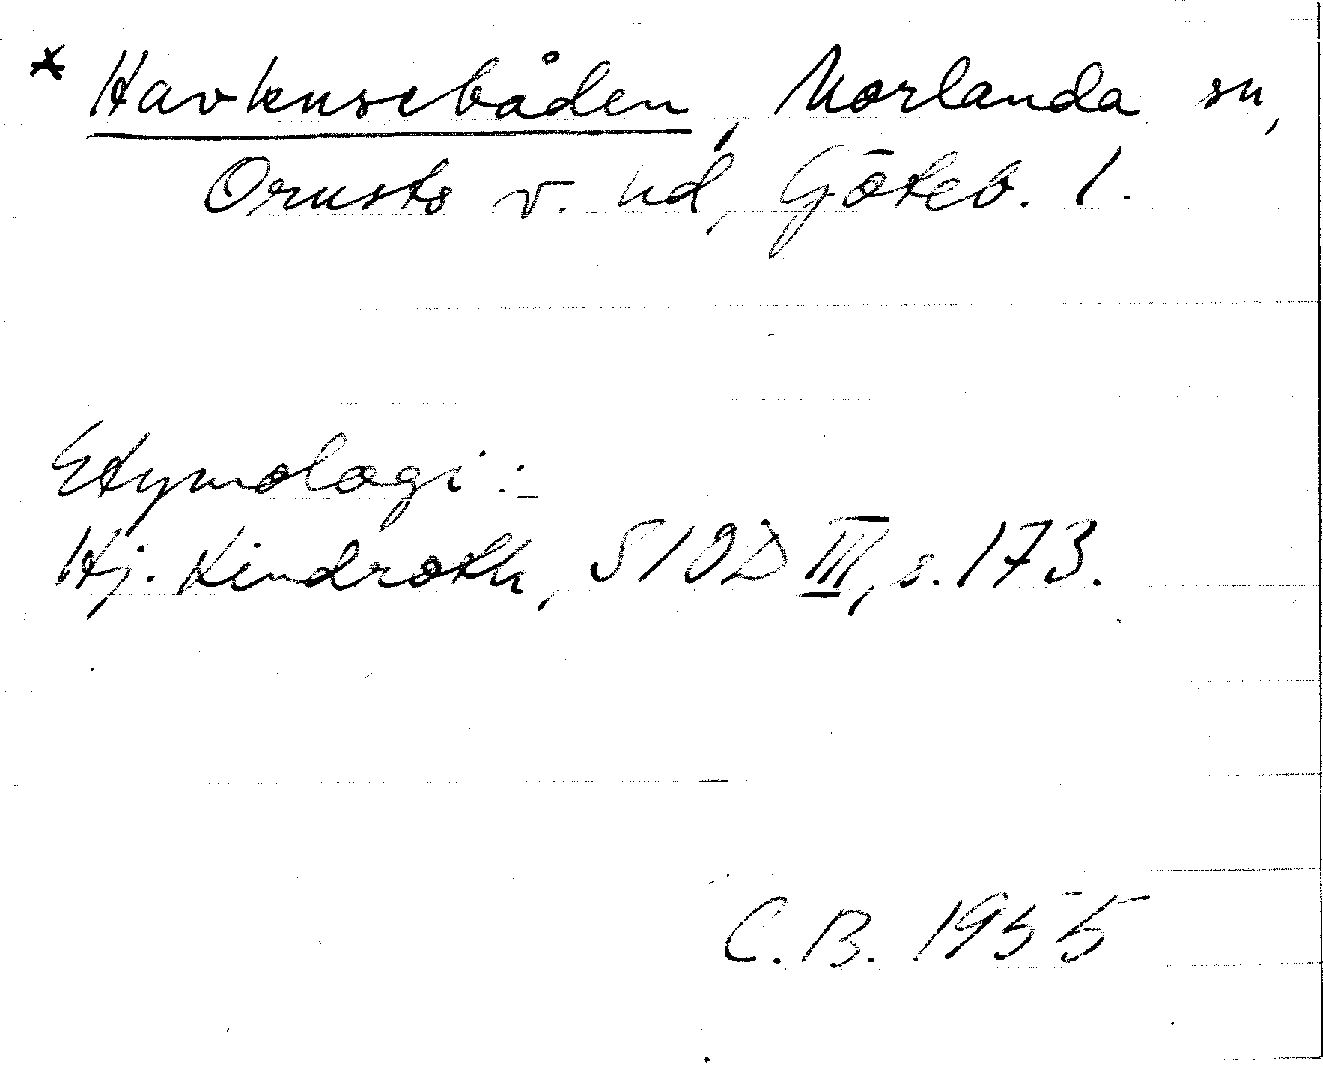 * Havhusebåden, Morlanda sn,
Orusts v. hd, Göteb. l.
Etymologi:
Hj. Lindroth, SIOD III, s. 173.
C.B. 1955